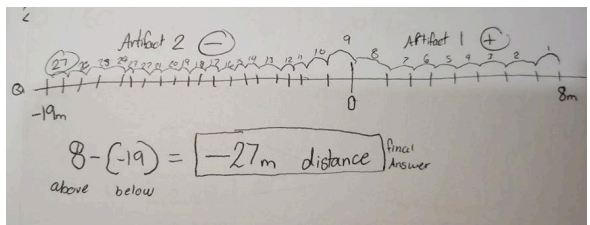 2
Artifact 2 − Artifact 1 +
27 26 25 24 23 22 21 20 19 18 17 16 15 14 13 12 11 10 9 8 7 6 5 4 3 2 1
-19m 0 8m
8-(-19) = -27m distance final Answer
above below